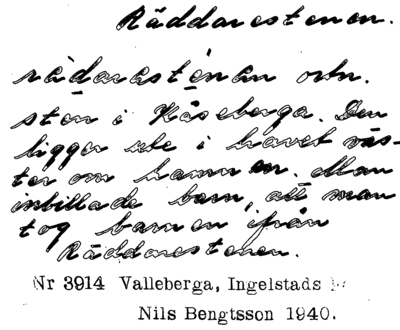 Räddarestenen.
rädarastenan ortn.
sten i Kåseberga. Den
ligger ute i havet väs-
ter om hamnen. Man
inbillade barn, att man
tog barnen ifrån
Räddarestenen.
Nr 3914 Valleberga, Ingelstads
Nils Bengtsson 1940.